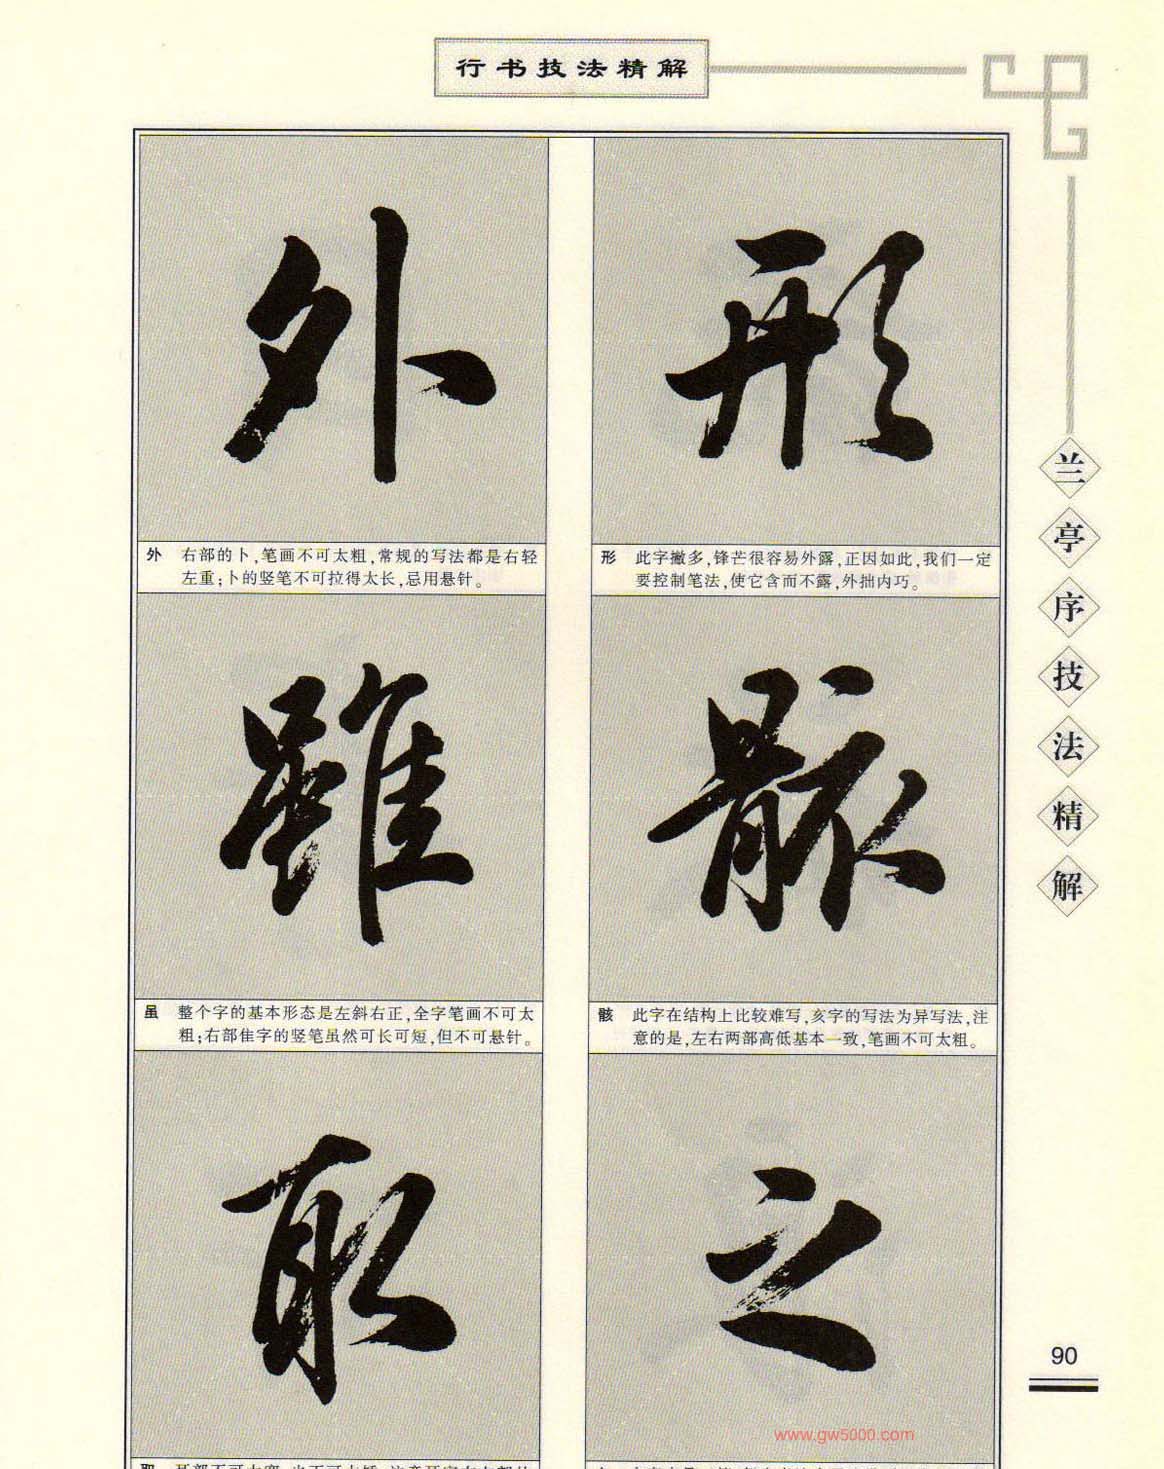 行书技法精解
形
外
形 此字撇多,锋芒很容易外露,正因如此,我们一定
要控制笔法,使它含而不露,外拙内巧。
外 右部的卜,笔画不可太粗,常规的写法都是右轻
左重;卜的竖笔不可拉得太长,忌用悬针。
骸
雖
骸 此字在结构上比较难写,亥字的写法为异写法,注
意的是,左右两部高低基本一致,笔画不可太粗。
虽 整个字的基本形态是左斜右正,全字笔画不可太
粗;右部隹字的竖笔虽然可长可短,但不可悬针。
之
取
兰亭序技法精解
90
www.gw5000.com